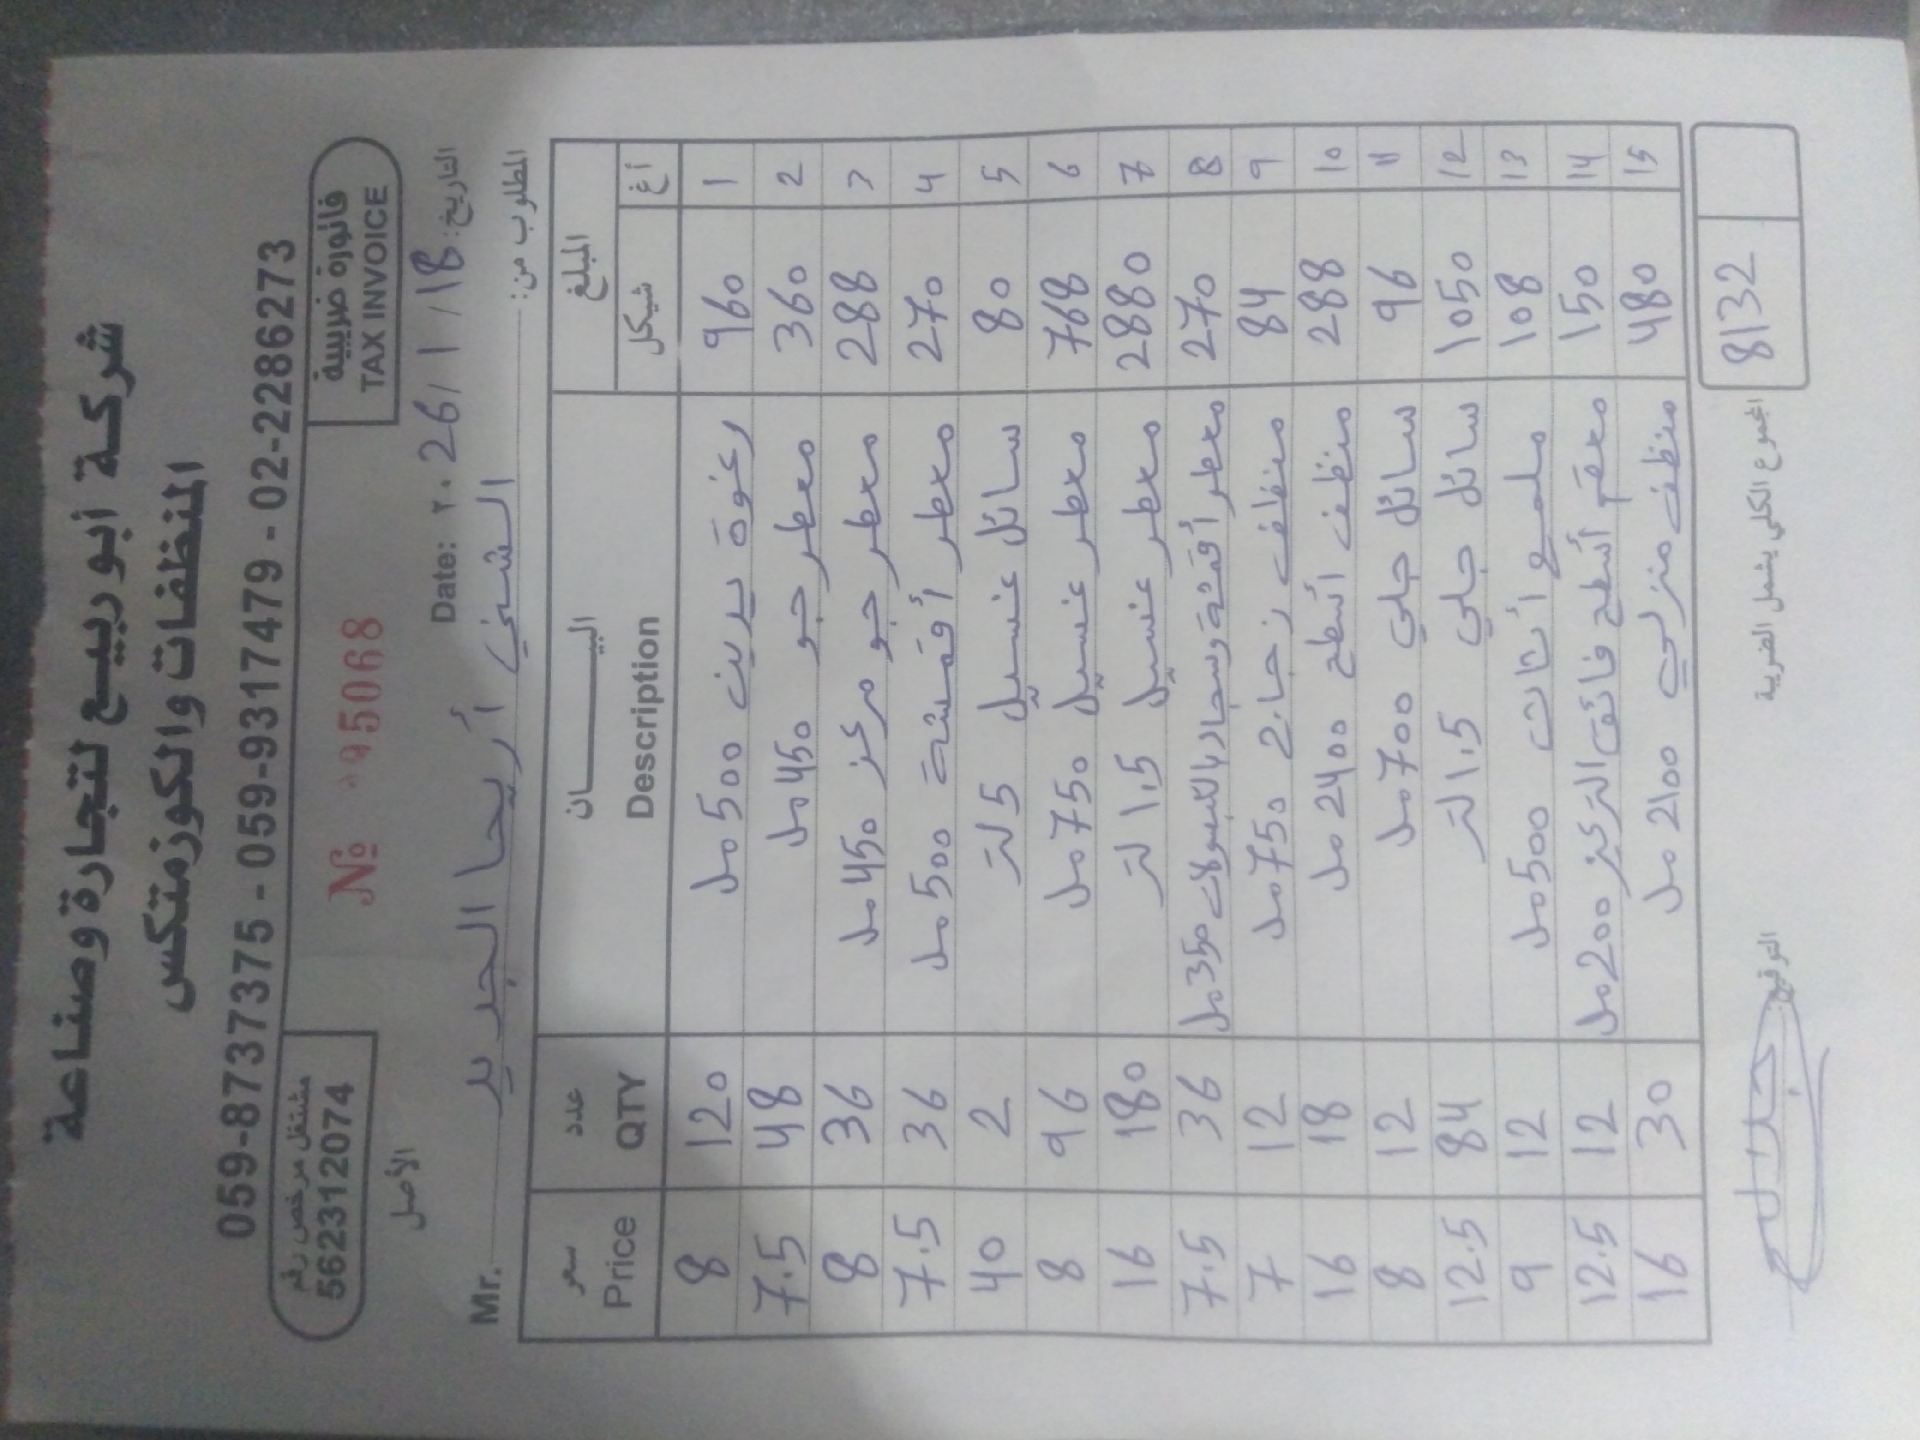 شركة أبو ربيع لتجارة وصناعة
المنظفات والكوزمتكس
059-8737375 - 059-9317479 - 02-2286273
فاتورة ضريبية
TAX INVOICE
№ 95068
مشتغل مرخص رقم
562312074
الأصل
التاريخ: 18 / 1 / 26 ٢٠ Date:
المطلوب من: الشني أريحا الجديد Mr.
المبلغ البيـــــان عدد سعر
أغ شيكل Description QTY Price
1 960 رغوة يدين 500 مل 120 8
2 360 معطر جو 450 مل 48 7.5
3 288 معطر جو مركز 450 مل 36 8
4 270 معطر أقمشة 500 مل 36 7.5
5 80 سائل غسيل 5 لتر 2 40
6 768 معطر غسيل 750 مل 96 8
7 2880 معطر غسيل 1.5 لتر 180 16
8 270 معطر أقمشة وسجاد بالكبسولات 350 مل 36 7.5
9 84 منظف زجاج 750 مل 12 7
10 288 منظف أسطح 2400 مل 18 16
11 96 سائل جلي 700 مل 12 8
12 1050 سائل جلي 1.5 لتر 84 12.5
13 108 ملمع أثاث 500 مل 12 9
14 150 معقم أسطح فائق التركيز 200 مل 12 12.5
15 480 منظف منزلي 2100 مل 30 16
المجموع الكلي يشمل الضريبة 8132
التوقيع: